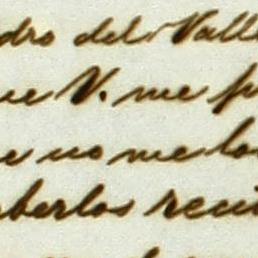 dro del Valle
ue V. me p
e no me los
berlos reci